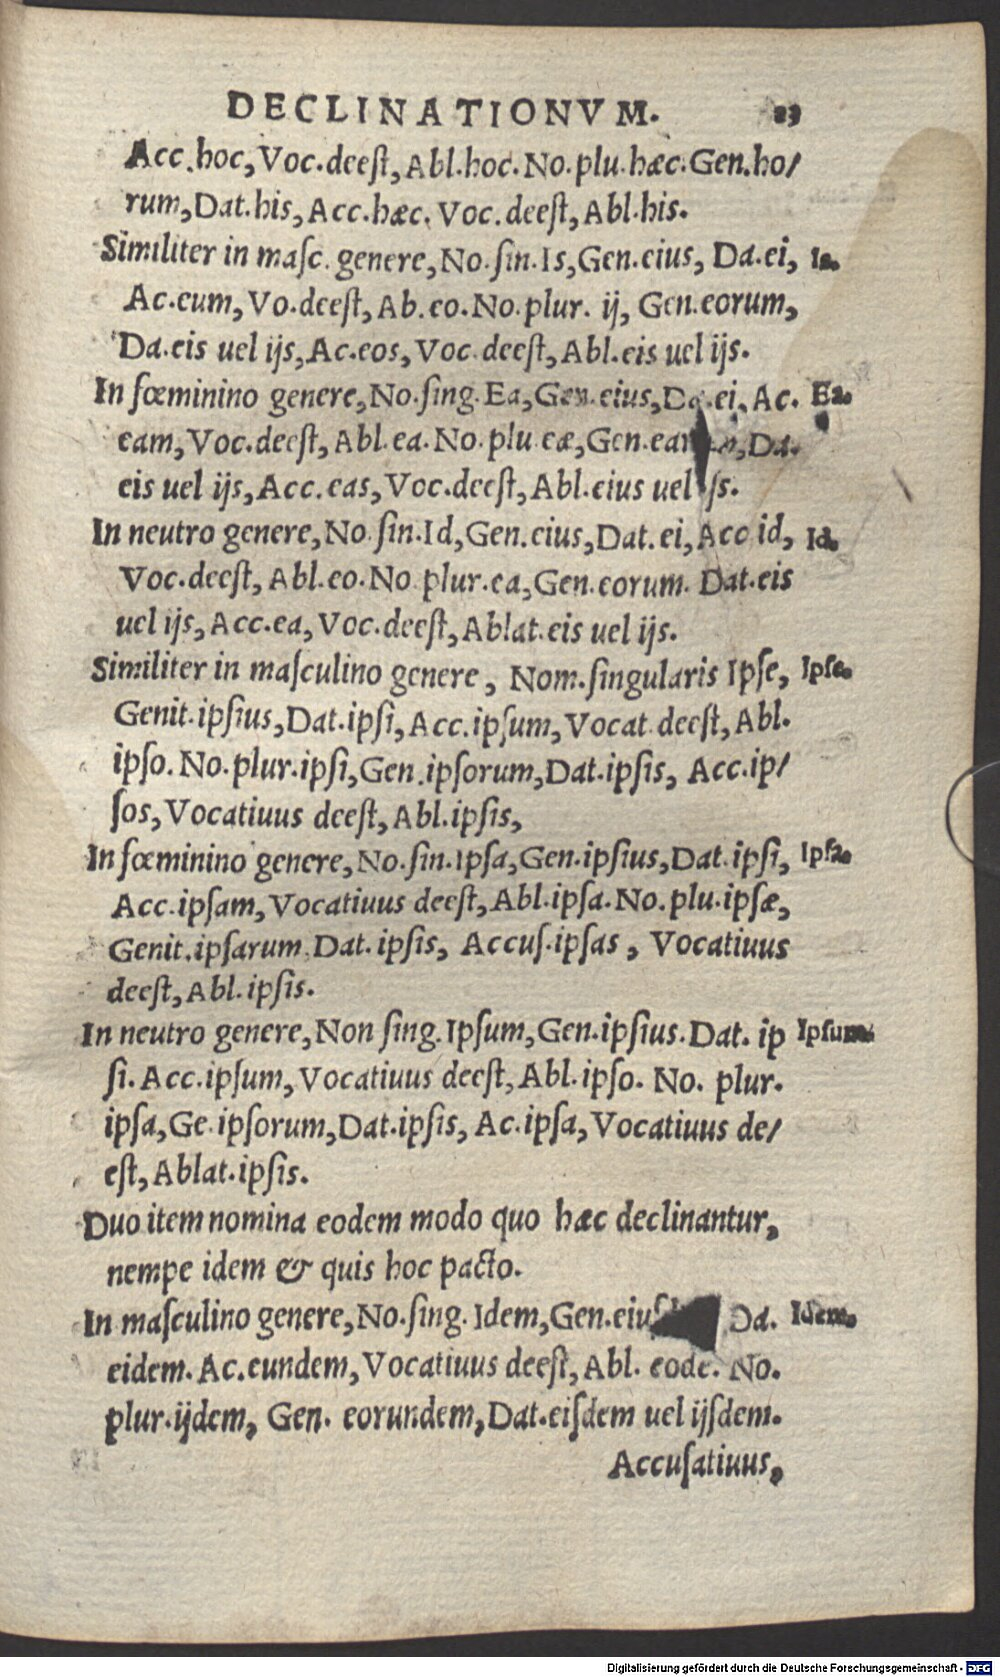 DECLINATIONVM. 23
Acc.hoc, Voc.deeſt, Abl.hoc. No.plu.hæc. Gen.ho/
rum, Dat.his, Acc.hæc. Voc.deeſt, Abl.his.
Similiter in maſc. genere, No.ſin.Is, Gen.eius, Da.ei, Is.
Ac.eum, Vo.deeſt, Ab.eo. No.plur. ij, Gen.eorum,
Da.eis uel ijs, Ac.eos, Voc.deeſt, Abl.eis uel ijs.
In fœminino genere, No.ſing. Ea, Gen.eius, Da.ei, Ac. Ea.
eam, Voc.deeſt, Abl.ea. No.plu eæ, Gen. Da.
eis uel ijs, Acc.eas, Voc.deeſt, Abl.eius uel
In neutro genere, No.ſin.Id, Gen.eius, Dat.ei, Acc id, Id.
Voc.deeſt, Abl.eo. No plur.ea, Gen.eorum. Dat.eis
uel ijs, Acc.ea, Voc.deeſt, Ablat.eis uel ijs.
Similiter in maſculino genere, Nom.ſingularis Ipſe, Ipſe.
Genit.ipſius, Dat.ipſi, Acc.ipſum, Vocat.deeſt, Abl.
ipſo. No.plur.ipſi, Gen.ipſorum, Dat.ipſis, Acc.ip/
ſos, Vocatiuus deeſt, Abl.ipſis,
In fœminino genere, No.ſin.Ipſa, Gen.ipſius, Dat.ipſi, Ipſa.
Acc.ipſam, Vocatiuus deeſt, Abl.ipſa. No.plu.ipſæ,
Genit.ipſarum. Dat.ipſis, Accuſ.ipſas, Vocatiuus
deeſt, Abl.ipſis.
In neutro genere, Non ſing.Ipſum, Gen.ipſius. Dat. ip Ipſum.
ſi. Acc.ipſum, Vocatiuus deeſt, Abl.ipſo. No. plur.
ipſa, Ge.ipſorum, Dat.ipſis, Ac.ipſa, Vocatiuus de/
eſt, Ablat.ipſis.
Duo item nomina eodem modo quo hæc declinantur,
nempe idem & quis hoc pacto.
In maſculino genere, No.ſing. Idem, Gen. Da. Idem.
eidem. Ac.eundem, Vocatiuus deeſt, Abl. eodē. No.
plur.ijdem, Gen. eorundem, Dat.eiſdem uel ijſdem.
Accuſatiuus,
Digitalisierung gefördert durch die Deutsche Forschungsgemeinschaft - DFG